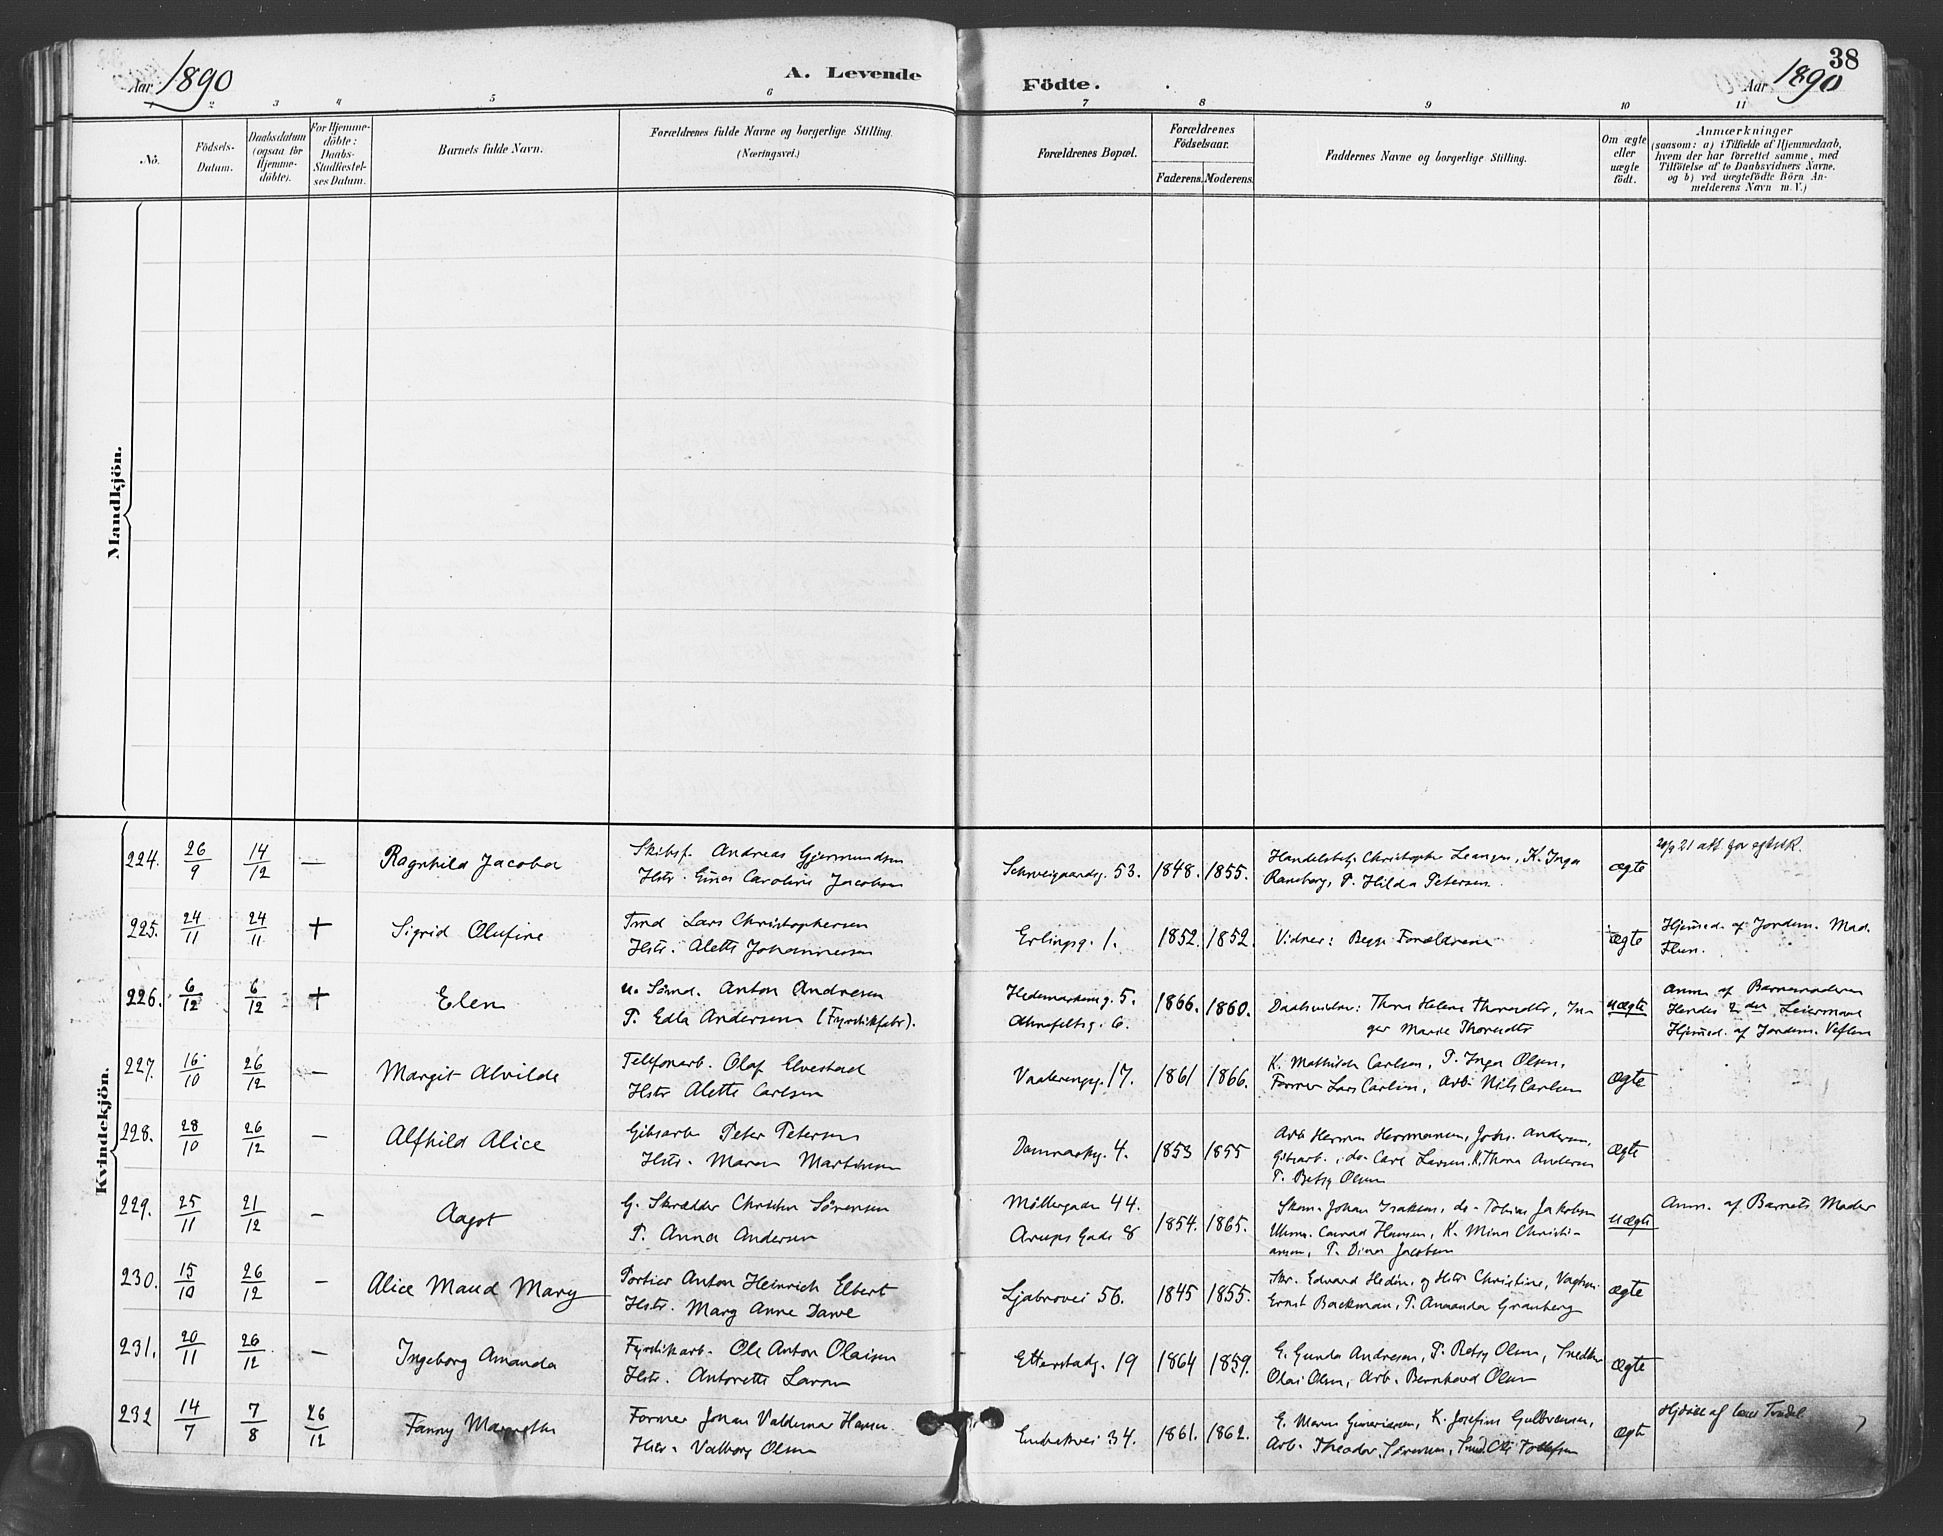 38
Aar 1890
A. Levende
Födte.
Aar 1890
1 2 3 4 5 6 7 8 9 10 11
No.
Födsels-
Datum.
Daabsdatum
(ogsaa for
Hjemme-
döbte).
For Hjemme-
döbte:
Daabs-
Stadfæstel-
ses Datum.
Barnets fulde Navn.
Forældrenes fulde Navne og borgerlige Stilling.
(Næringsvei.)
Forældrenes Bopæl.
Forældrenes
Födselsaar.
Faderens.
Moderens.
Faddernes Navne og borgerlige Stilling.
Om ægte
eller
uægte
födt.
Anmærkninger
(saasom: a) i Tilfælde af Hjemmedaab,
hvem der har forrettet samme, med
Tilföielse af to Daabsvidners Navne,
og b) ved uægtefödte Börn An-
melderens Navn m. V.)
Mandkjön.
Kvindekjön.
224. 26/9 14/12 — Ragnhild Jacoba
Skibsf. Andreas Gjermundsen
Hstr. Caroline Jacobsen
Schweigaardsg. 53. 1848. 1855.
Christopher K. Inga
T. Hilda Petersen
ægte
225. 24/11 24/11 + Sigrid Olufine
Tmd Lars Christophersen
Hstr. Alette Johannessen
Erlingsg. 1. 1852. 1852. Vidner: Begge Forældrene
ægte
Hjemmed. af Jordem. Mad.
226. 6/12 6/12 + Elen
u. Sömd. Anton Andresen
T. Edla Andersen (Fyrstikfabr).
Hedemarkens g. 5.
Ahnefeltsg. 6.
1866. 1860. Daabsvidner: Thora Helene Thoresdtr, In-
ger Marie Thoresdtr
uægte
Anm. af Barnemoderen
Hendes 2 den Leiermaal
Hjemmed. af Jordem.
227. 16/10 26/12 — Margit Alvilde
Telefonarb. Olaf Elvestad
Hstr Alette Carlsen
Vaalerengg. 17. 1861 1866.
K. Mathilde Carlsen, T. Inga Olsen,
Former Lars Carlsen, Arb. Nils Carlsen
ægte
228. 28/10 26/12 — Alfhild Alice
Gibsarb Peter Petersen
Hstr. Maren Martinsen
4. 1853 1855
Arb Herman Hermansen, Johs. Andersen,
Gibsarb., do Carl Larsen, K. Thora Andersen
T. Betsy Olsen
ægte
229. 25/11 21/12 — Aagot
G. Skrædder Christen Sörensen
T. Anna Andersen
Möllergaden 44.
Arups Gade 8
1854. 1865.
Skom. Johan Isaksen, do Tobias Jakobsen
Uhrm. Conrad Hansen, K. Mina Christi-
ansen, T. Dina Jacobsen
uægte
Anm. af Barnets Moder
230. 15/10 26/12 — Alice Maud Mary
Portier Anton Heinrich Elbert
Hstr. Mary Anne Dawe
Ljabrovei 56. 1845 1855.
Skr. Edvard Hedin, og Hstr Christine,
Ernst Backman, T. Amanda Granberg
ægte
231. 20/11 26/12 — Ingeborg Amanda
Fyrstikarb. Ole Anton Olaisen
Hstr. Antonette Larsen
Etterstadg. 19 1864 1859.
E. Gunda Andresen, T. Betsy Olsen, Snedker
Olai Olsen, Arb. Bernhard Olsen
ægte
232 14/7 7/8 26/12 Fanny Margrethe
Former Johan Valdemar Hansen
Hstr. Valborg Olsen
Enebakvei 34. 1861. 1862.
E. Maren K. Josefine Gulbransen,
Arb. Theodor Sörensen,
ægte